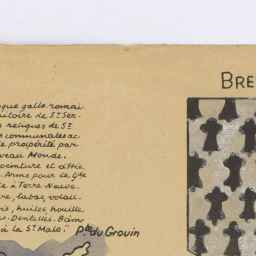 BRE
que gallo romai
uitoire de St Ser.
s reliques de St
s communales ac.
e prospérité par
veau Monde.
peinture et dttie
Arms pour la Gde
e à Terre Neuve.
re, tabac, volail.
is, huiles houille
s. Dentelles. Bain
à le St Malo.
Pte du Grouin